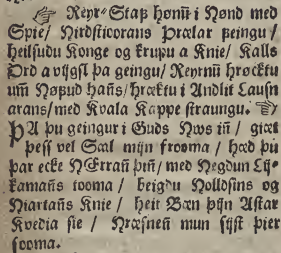 Reyr-Staf hønū i Hønd med
Spie/ Hirdstioorans Þrælar þeingu/
heilsudu Konge og krupu a Knie/ Kalls
Ord a vijxl þa geingu/ Reyrnū hrøcktu
um Høfud hans/ hræktu i Andlit Lausn
arans/ med Kvala Kappe straungu.
ÞA þu geingur i Guds Hws iñ/ giæt
þess vel Sæl mijn frooma/ hæd þu
þar ecke HErrañ þiñ/ med Hegdun Lij-
kamans tooma/ beigdu Holldsins og
Hiartans Knie/ heit Bæn þijn Astar
Kvedia sie/ Hræsnen mun sijst þier
sooma.